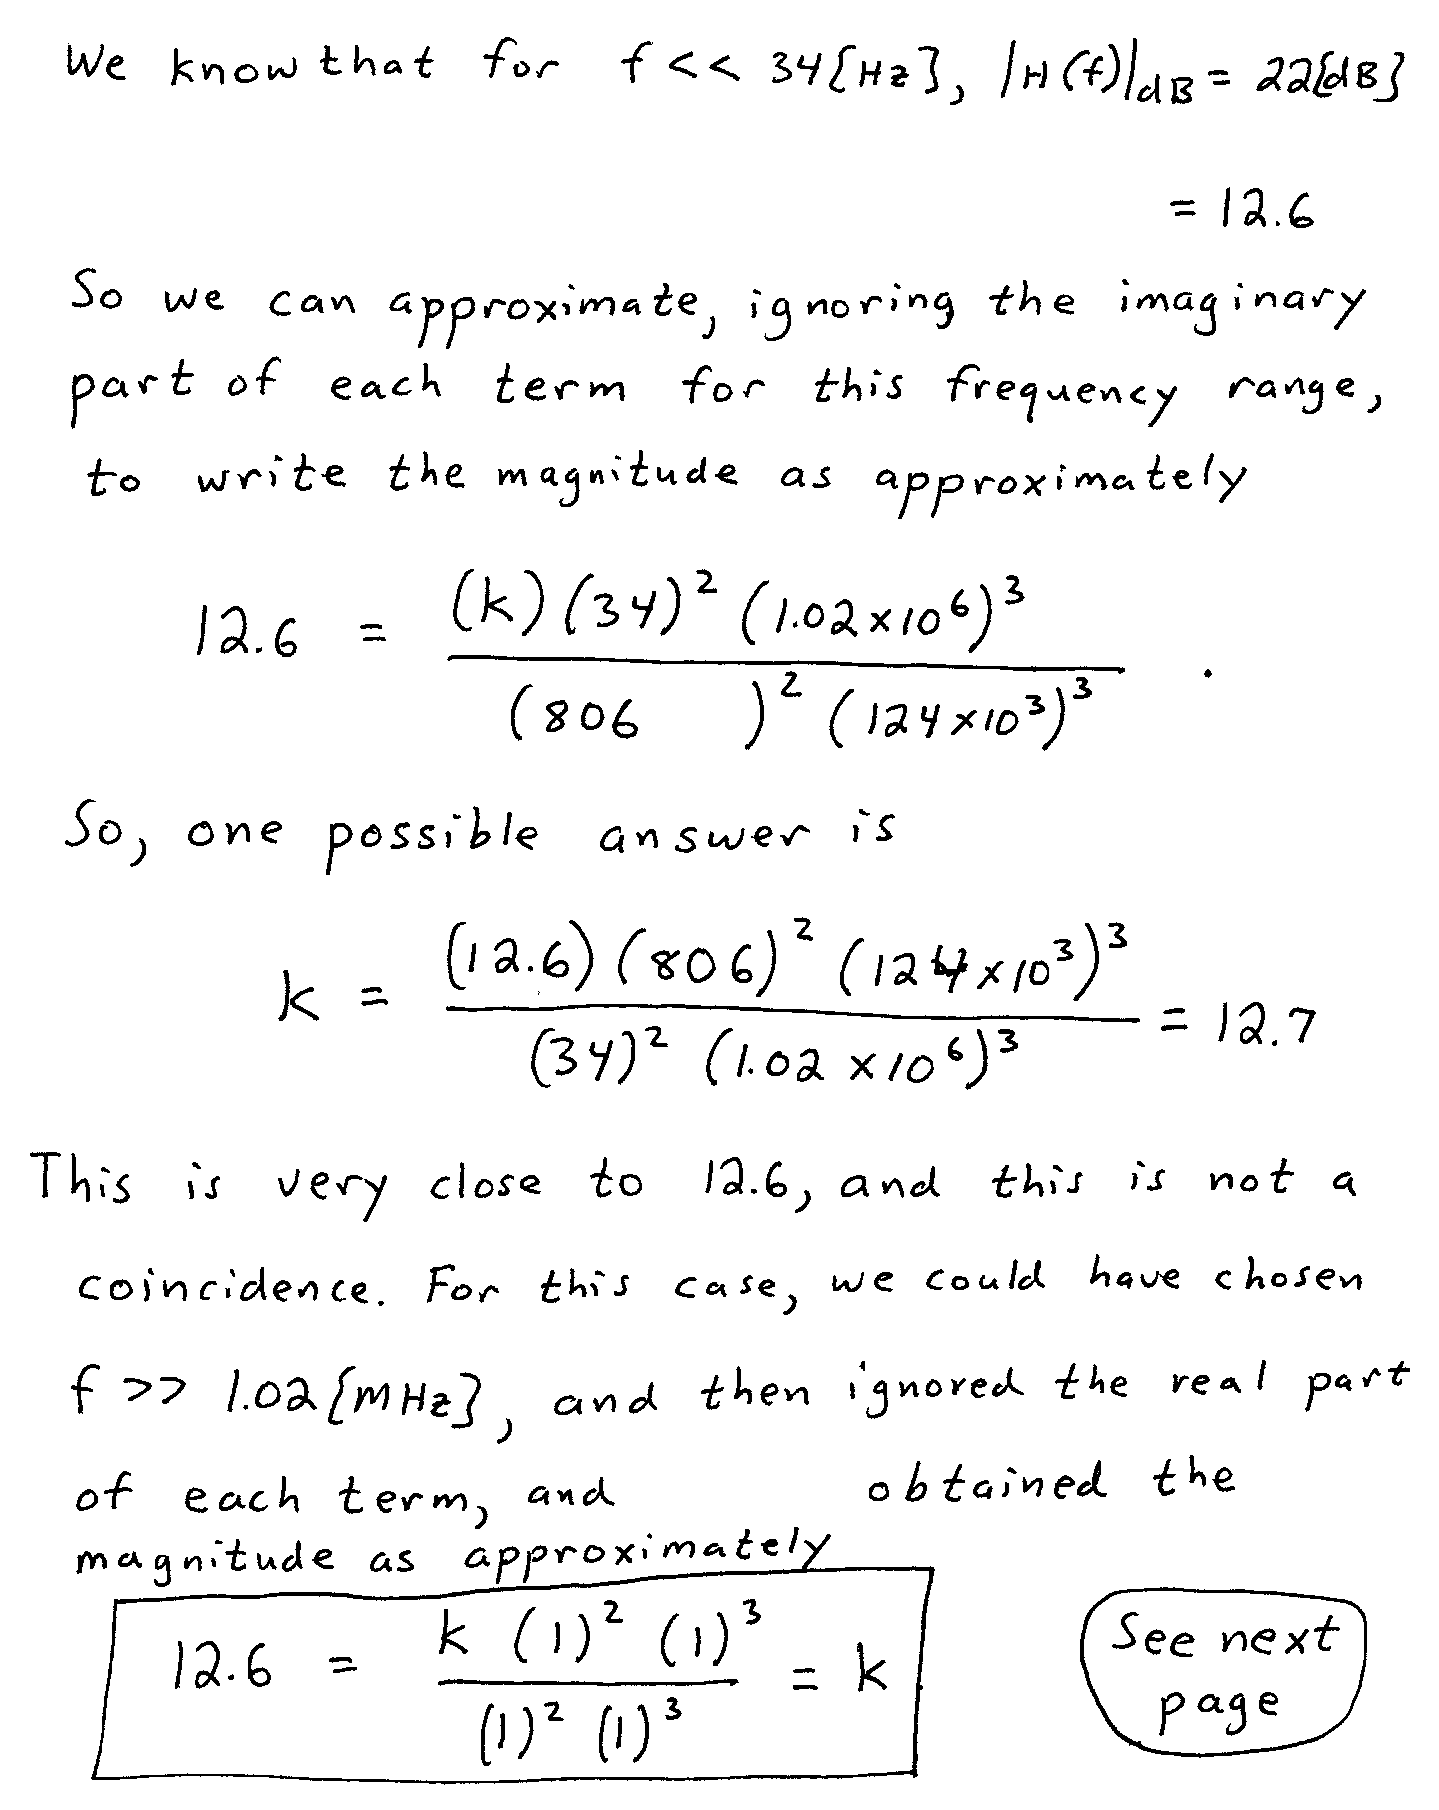 We know that for f << 34[Hz], |H(f)|dB = 22[dB]
= 12.6
So we can approximate, ignoring the imaginary
part of each term for this frequency range,
to write the magnitude as approximately
12.6 = (k)(34)² (1.02×10⁶)³ / (806 )² (124×10³)³ .
So, one possible answer is
k = (12.6)(806)² (124×10³)³ / (34)² (1.02×10⁶)³ = 12.7
This is very close to 12.6, and this is not a
coincidence. For this case, we could have chosen
f >> 1.02[MHz], and then ignored the real part
of each term, and obtained the
magnitude as approximately
12.6 = k (1)² (1)³ / (1)² (1)³ = k
See next
page